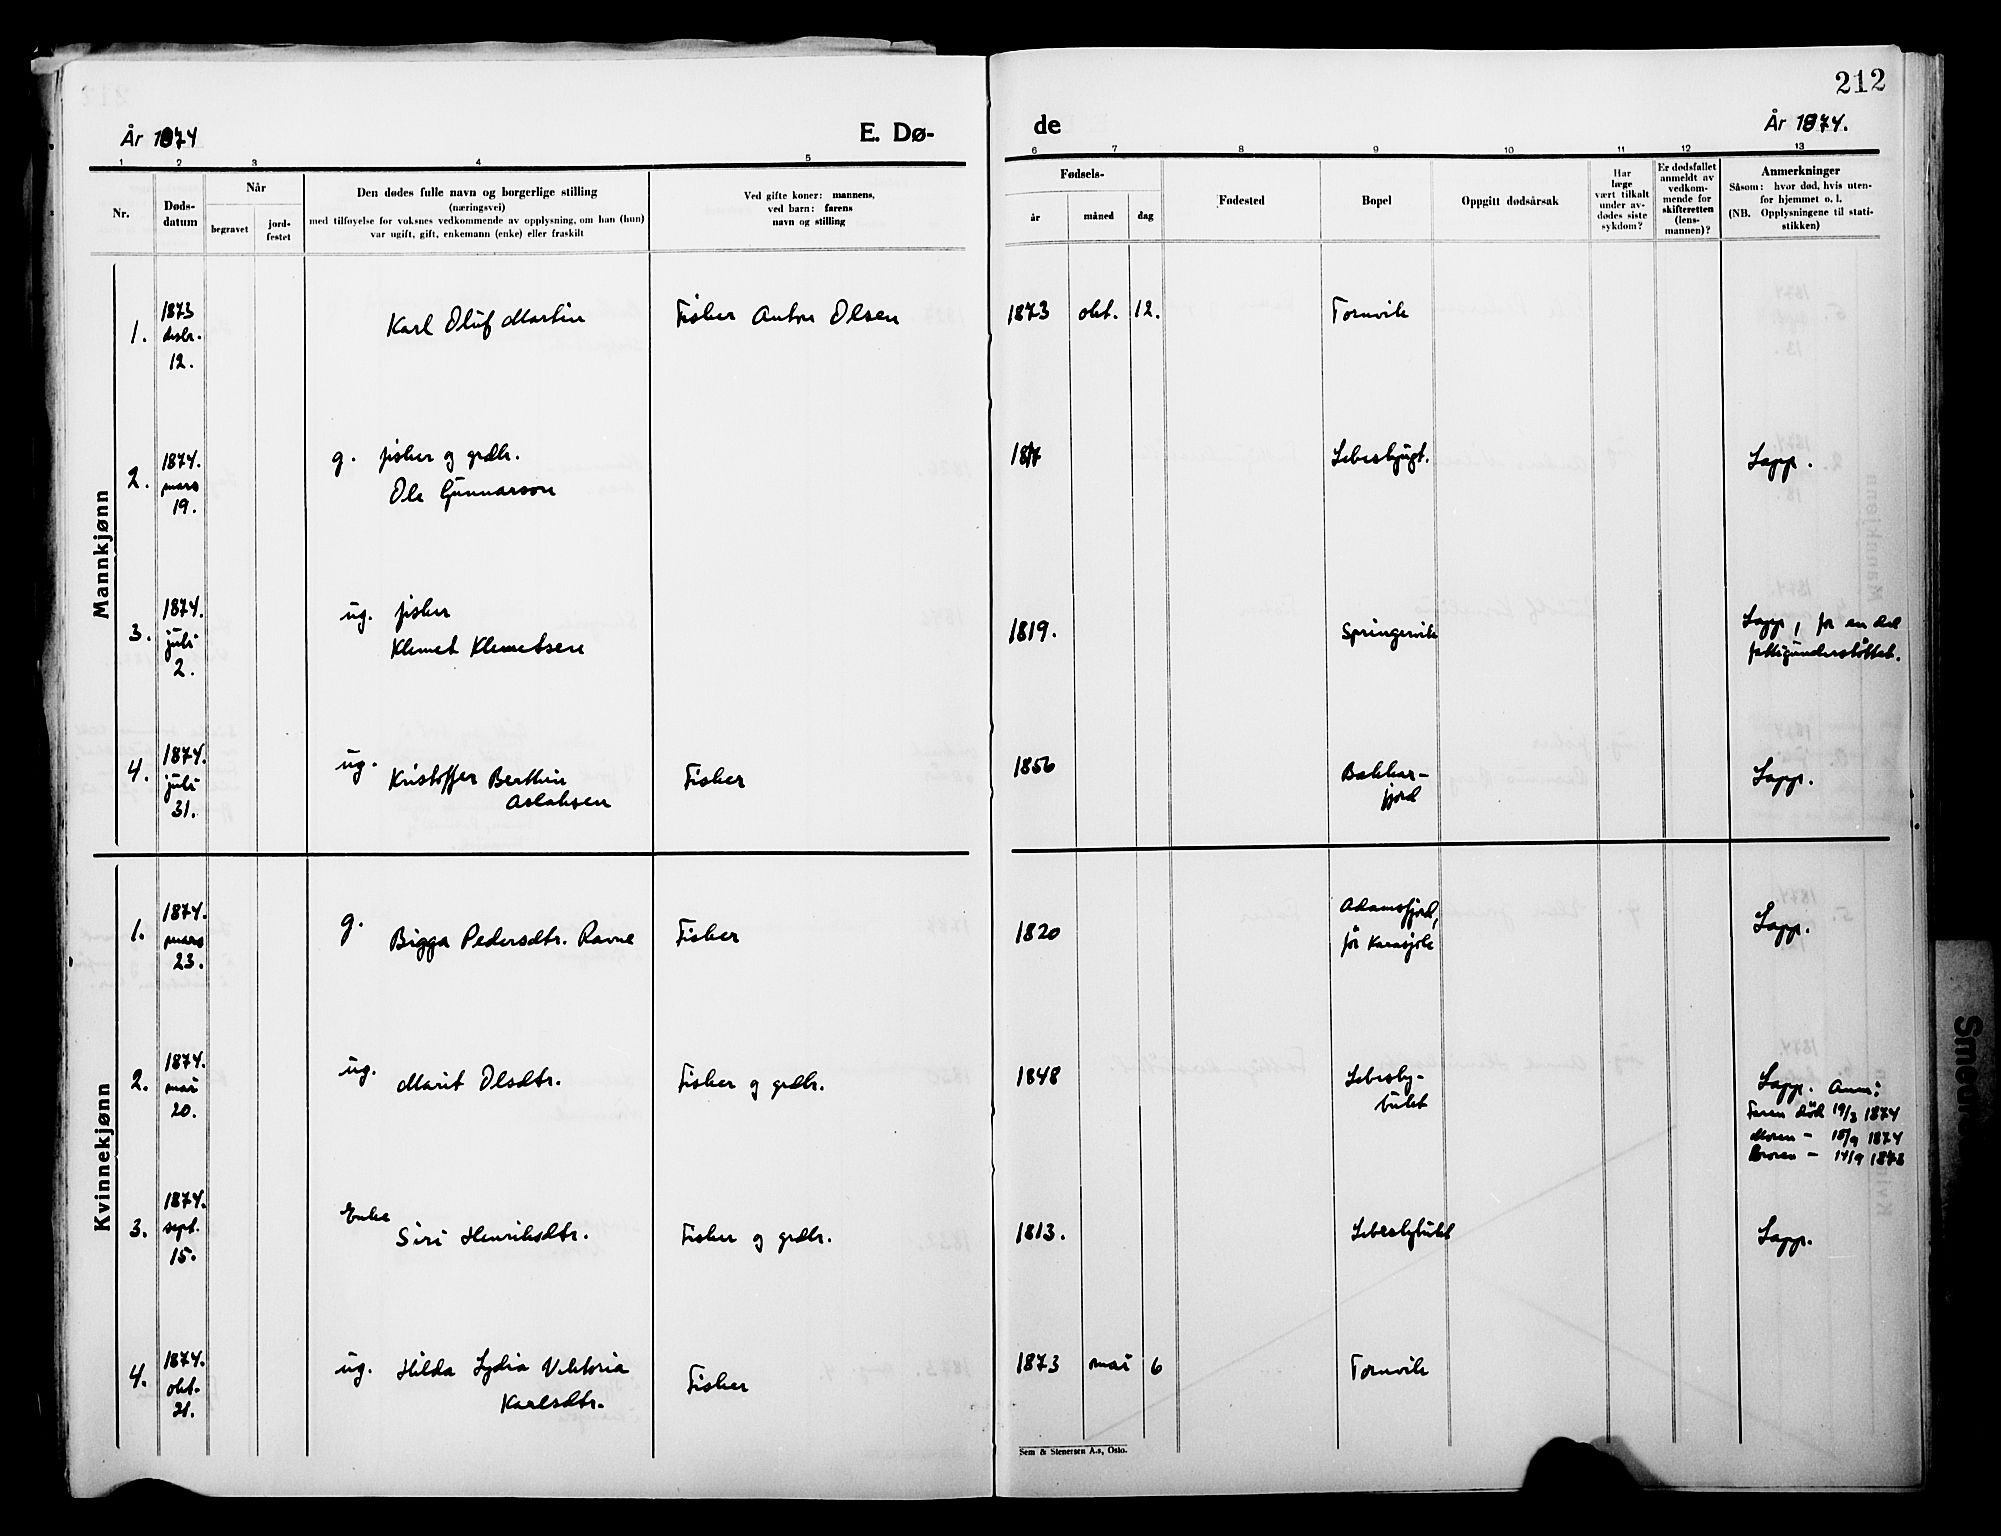 212
År 1874
E. Dø-
de
År 1874.
1 2 3 4 5
6 7 8 9 10 11 12 13
Nr.
Døds-
datum
Når
begravet
jord-
festet
Den dødes fulle navn og borgerlige stilling
(næringsvei)
med tilføyelse for voksnes vedkommende av opplysning, om han (hun)
var ugift, gift, enkemann (enke) eller fraskilt
Ved gifte koner: mannens,
ved barn: farens
navn og stilling
Fødsels-
år måned dag
Fødested
Bopel
Oppgitt dødsårsak
Har
læge
vært tilkalt
under av-
dødes siste
sykdom?
Er dødsfallet
anmeldt av
vedkom-
mende for
skifteretten
(lens-
mannen)?
Anmerkninger
Såsom: hvor død, hvis uten-
for hjemmet o. l.
(NB. Opplysningene til stati-
stikken)
Mannkjønn
1.
1873
desbr.
12.
Karl Oluf Martin
Fisker Anton Olsen
1873 okt. 12.
Tornvik
2.
1874.
mars
19.
g. fisker og grdbr.
Ole Gunnarson
1817
Lebesbyugt.
Lapp.
3.
1874.
juli
2.
ug. fisker
Klemet Klemetsen
1819.
Springervik
Lapp, for en del
fattigunderstøttet.
4.
1874.
juli
31.
ug.
Kristoffer Berthin
Aslaksen
Fisker
1856
Bakkar-
fjord
Lapp.
Kvinnekjønn
1.
1874.
mars
23.
g.
Bigga Pedersdtr. Ravne
Fisker
1820
Adamsfjord,
før Karasjok
Lapp.
2.
1874.
mai
20.
ug. Marit Olsdtr.
Fisker og grdbr.
1848
Lebesby-
bukt
Lapp. Anm:
Faren død 19/3 1874
Moren - 15/9 1874
Broren - 14/9 1873
3.
1874.
sept.
15.
Enke
Siri Henriksdtr.
Fisker og grdbr.
1813.
Lebesbybukt
Lapp.
4.
1874.
okt.
21.
ug. Hilda Lydia Viktoria
Karlsdtr.
Fisker
1873 mai 6
Tornvik
Sem & Stenersen A.s, Oslo.